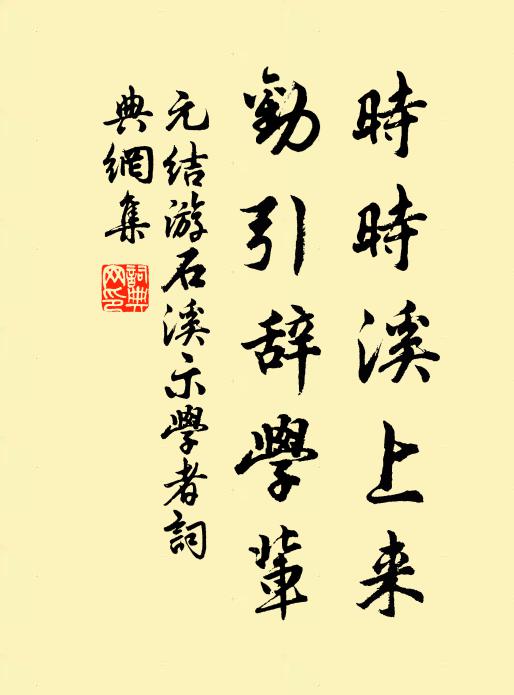 時時溪上来
勸引辞學輩
元结游石溪示學者詞
典網集
詞典网印